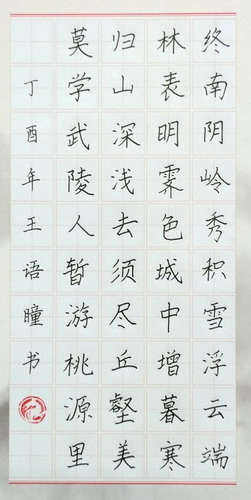 终南阴岭秀积雪浮云端
林表明霁色城中增暮寒
归山深浅去须尽丘壑美
莫学武陵人暂游桃源里
丁酉年王语瞳书